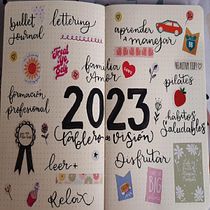 bullet
journal
lettering
aprender
a manejar
familia
Amor
pilates
formación
profesional
2023
tablero de visión
hábitos
Saludables
leer
Disfrutar
Relax
BIG